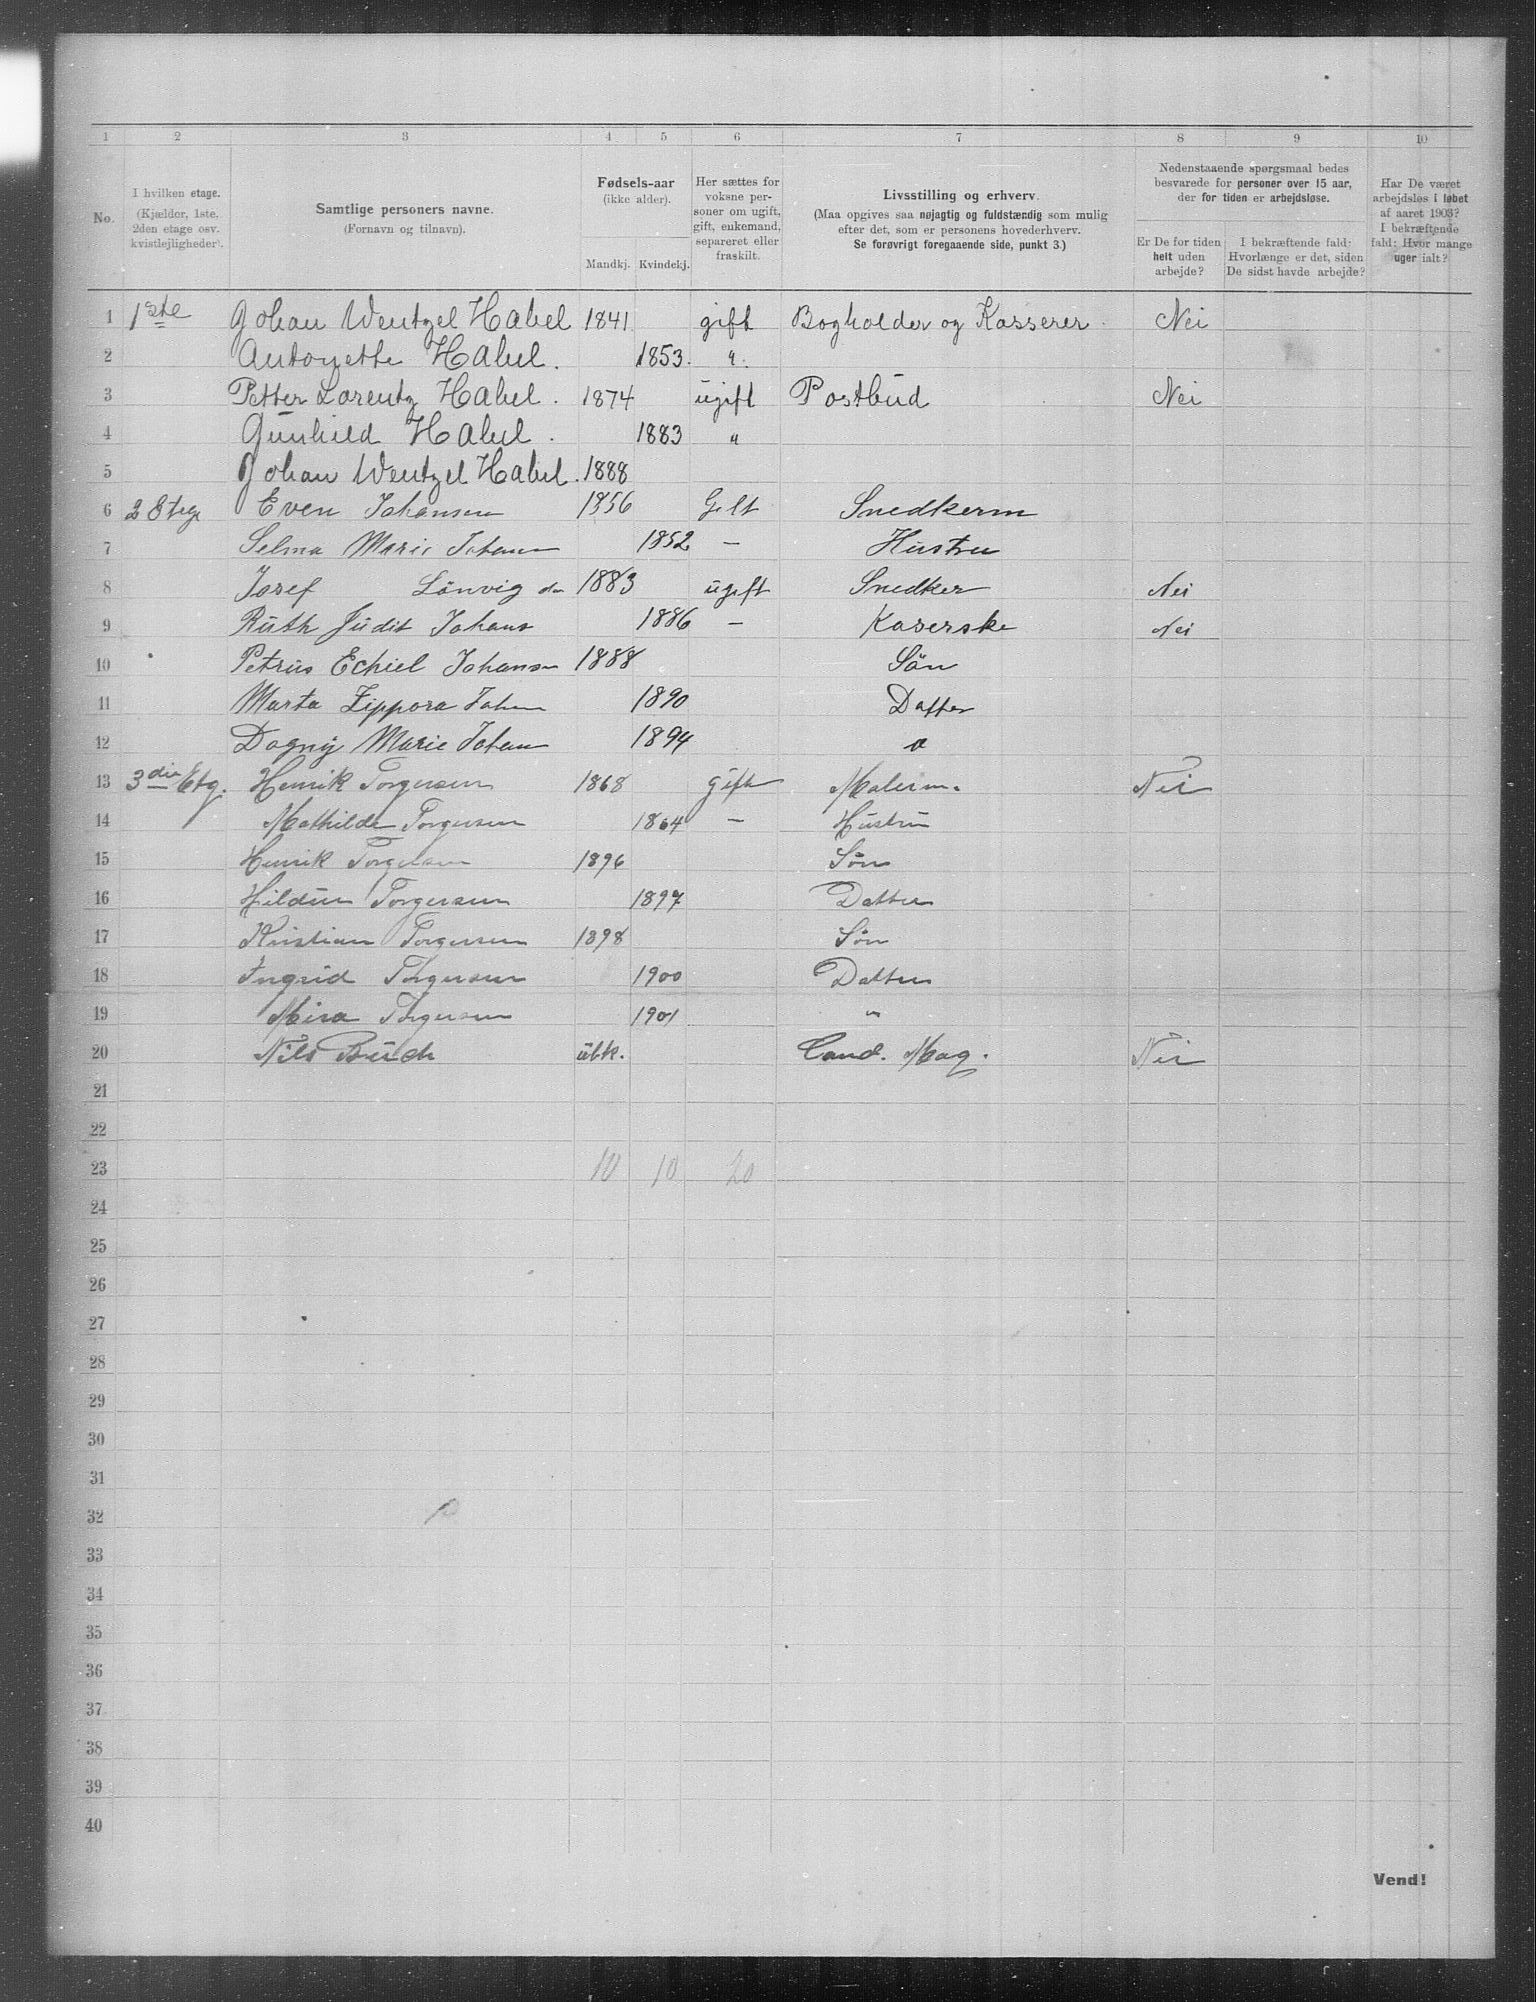 1 2 3 4 5 6 7 8 9 10
No.
I hvilken etage.
(Kjælder, 1ste,
2den etage osv.
kvistlejligheder).
Samtlige personers navne.
(Fornavn og tilnavn).
Fødsels-aar
(ikke alder).
Mandkj. Kvindekj.
Her sættes for
voksne per-
soner om ugift,
gift, enkemand,
separeret eller
fraskilt.
Livsstilling og erhverv.
(Maa opgives saa nøjagtig og fuldstændig som mulig
efter det, som er personens hovederhverv.
Se forøvrigt foregaaende side, punkt 3.)
Nedenstaaende spørgsmaal bedes
besvarede for personer over 15 aar,
der for tiden er arbejdsløse.
Er De for tiden
helt uden
arbejde?
I bekræftende fald:
Hvorlænge er det, siden
De sidst havde arbejde?
Har De været
arbejdsløs i løbet
af aaret 1903?
I bekræftende
fald: Hvor mange
uger ialt?
1 1ste Johan Wentzel Habel 1841 gift Bogholder og Kasserer. Nei
2 Antonette Habel. 1853. "
3 Petter Lorentz Habel. 1874 ugift Postbud Nei
4 Gunhild Habel. 1883 "
5 Johan Wentzel Habel. 1888
6 2 Etag Even Johansen 1856 Gift Snedkerm
7 Selma Marie Johan 1852 – Hustru
8 Josef Lönvig do 1883 ugift Snedker Nei
9 Ruth Judit Johans 1886 – Kaserske Nei
10 Petrus Echiel Johansn 1888 Sön
11 Marta Zippora Johan 1890 Datter
12 Dagny Marie Johan 1894 "
13 3die Etg. Henrik Torgersen 1868 Gift Malerm. Nei
14 Mathilde Torgersen 1864 – Hustru
15 Henrik Torgersen 1896 Søn
16 Hildur Torgersen 1897 Datter
17 Kristian Torgersen 1898 Søn
18 Ingrid Torgersen 1900 Datter
19 Mira Torgersen 1901 "
20 Nils Buch ubk. Cand. Mag. Nei
21
22
23 10 10 20
24
25
26
27
28
29
30
31
32
33
34
35
36
37
38
39
40
Vend!